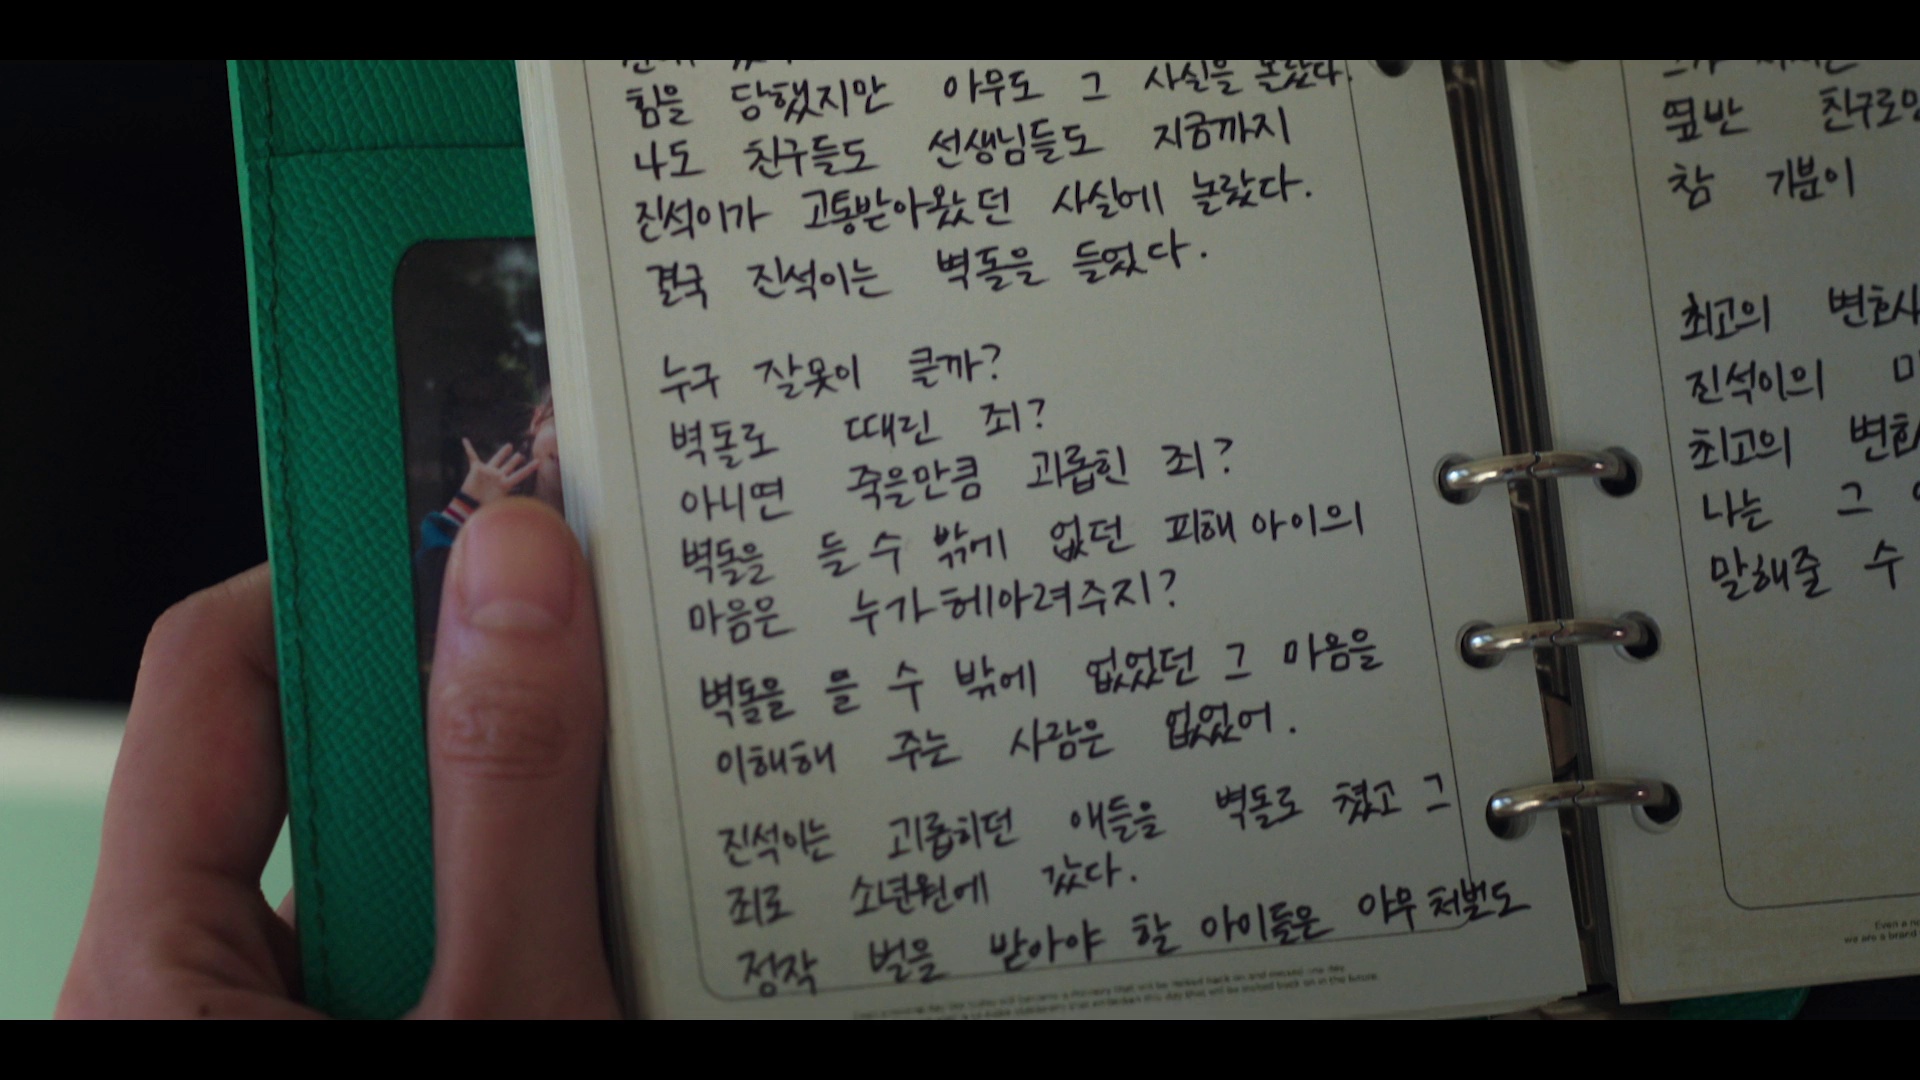 힘을 당했지만 아무도 그 사실을 몰랐다.
나도 친구들도 선생님들도 지금까지
진석이가 고통받아왔던 사실에 놀랐다.
결국 진석이는 벽돌을 들었다.
누구 잘못이 클까?
벽돌로 때린 죄?
아니면 죽을만큼 괴롭힌 죄?
벽돌을 들 수 밖에 없던 피해 아이의
마음은 누가 헤아려주지?
벽돌을 들 수 밖에 없었던 그 마음을
이해해 주는 사람은 없었어.
진석이는 괴롭히던 애들을 벽돌로 쳤고 그
죄로 소년원에 갔다.
정작 벌을 받아야 할 아이들은 아무 처벌도
옆반 친구로
참 기분이
최고의 변호사
진석이의
최고의 변호
나는 그
말해줄 수